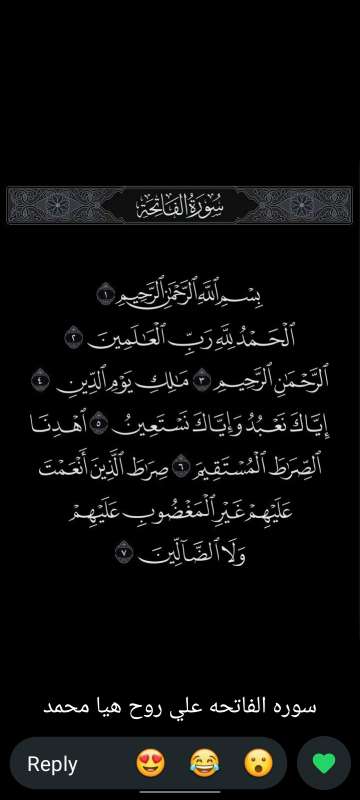 سُورَةُ الفَاتِحَةِ
بِسْمِ ٱللَّهِ ٱلرَّحْمَٰنِ ٱلرَّحِيمِ ١
ٱلْحَمْدُ لِلَّهِ رَبِّ ٱلْعَٰلَمِينَ ٢
ٱلرَّحْمَٰنِ ٱلرَّحِيمِ ٣ مَٰلِكِ يَوْمِ ٱلدِّينِ ٤
إِيَّاكَ نَعْبُدُ وَإِيَّاكَ نَسْتَعِينُ ٥ ٱهْدِنَا
ٱلصِّرَٰطَ ٱلْمُسْتَقِيمَ ٦ صِرَٰطَ ٱلَّذِينَ أَنْعَمْتَ
عَلَيْهِمْ غَيْرِ ٱلْمَغْضُوبِ عَلَيْهِمْ
وَلَا ٱلضَّآلِّينَ ٧
سوره الفاتحه علي روح هيا محمد
Reply